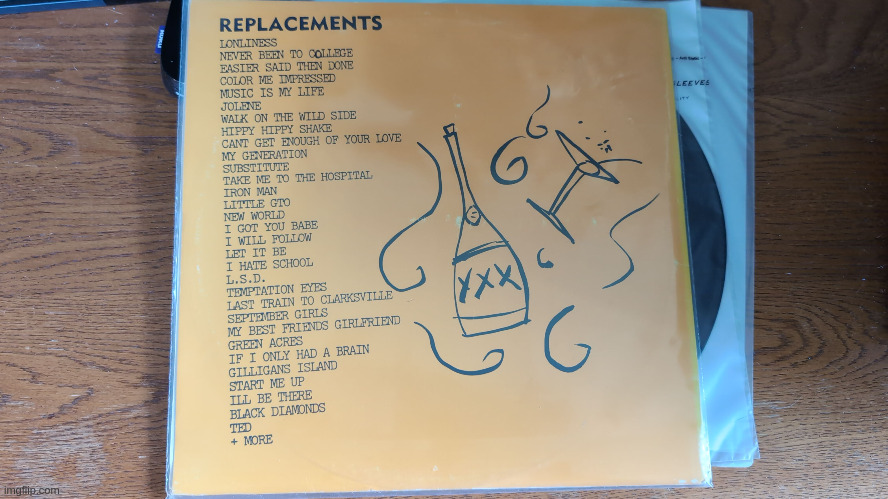 REPLACEMENTS
LONLINESS
NEVER BEEN TO COLLEGE
EASIER SAID THEN DONE
COLOR ME IMPRESSED
MUSIC IS MY LIFE
JOLENE
WALK ON THE WILD SIDE
HIPPY HIPPY SHAKE
CANT GET ENOUGH OF YOUR LOVE
MY GENERATION
SUBSTITUTE
TAKE ME TO THE HOSPITAL
IRON MAN
LITTLE GTO
NEW WORLD
I GOT YOU BABE
I WILL FOLLOW
LET IT BE
I HATE SCHOOL
L.S.D.
TEMPTATION EYES
LAST TRAIN TO CLARKSVILLE
SEPTEMBER GIRLS
MY BEST FRIENDS GIRLFRIEND
GREEN ACRES
IF I ONLY HAD A BRAIN
GILLIGANS ISLAND
START ME UP
ILL BE THERE
BLACK DIAMONDS
TED
+ MORE
XXX
imgflip.com